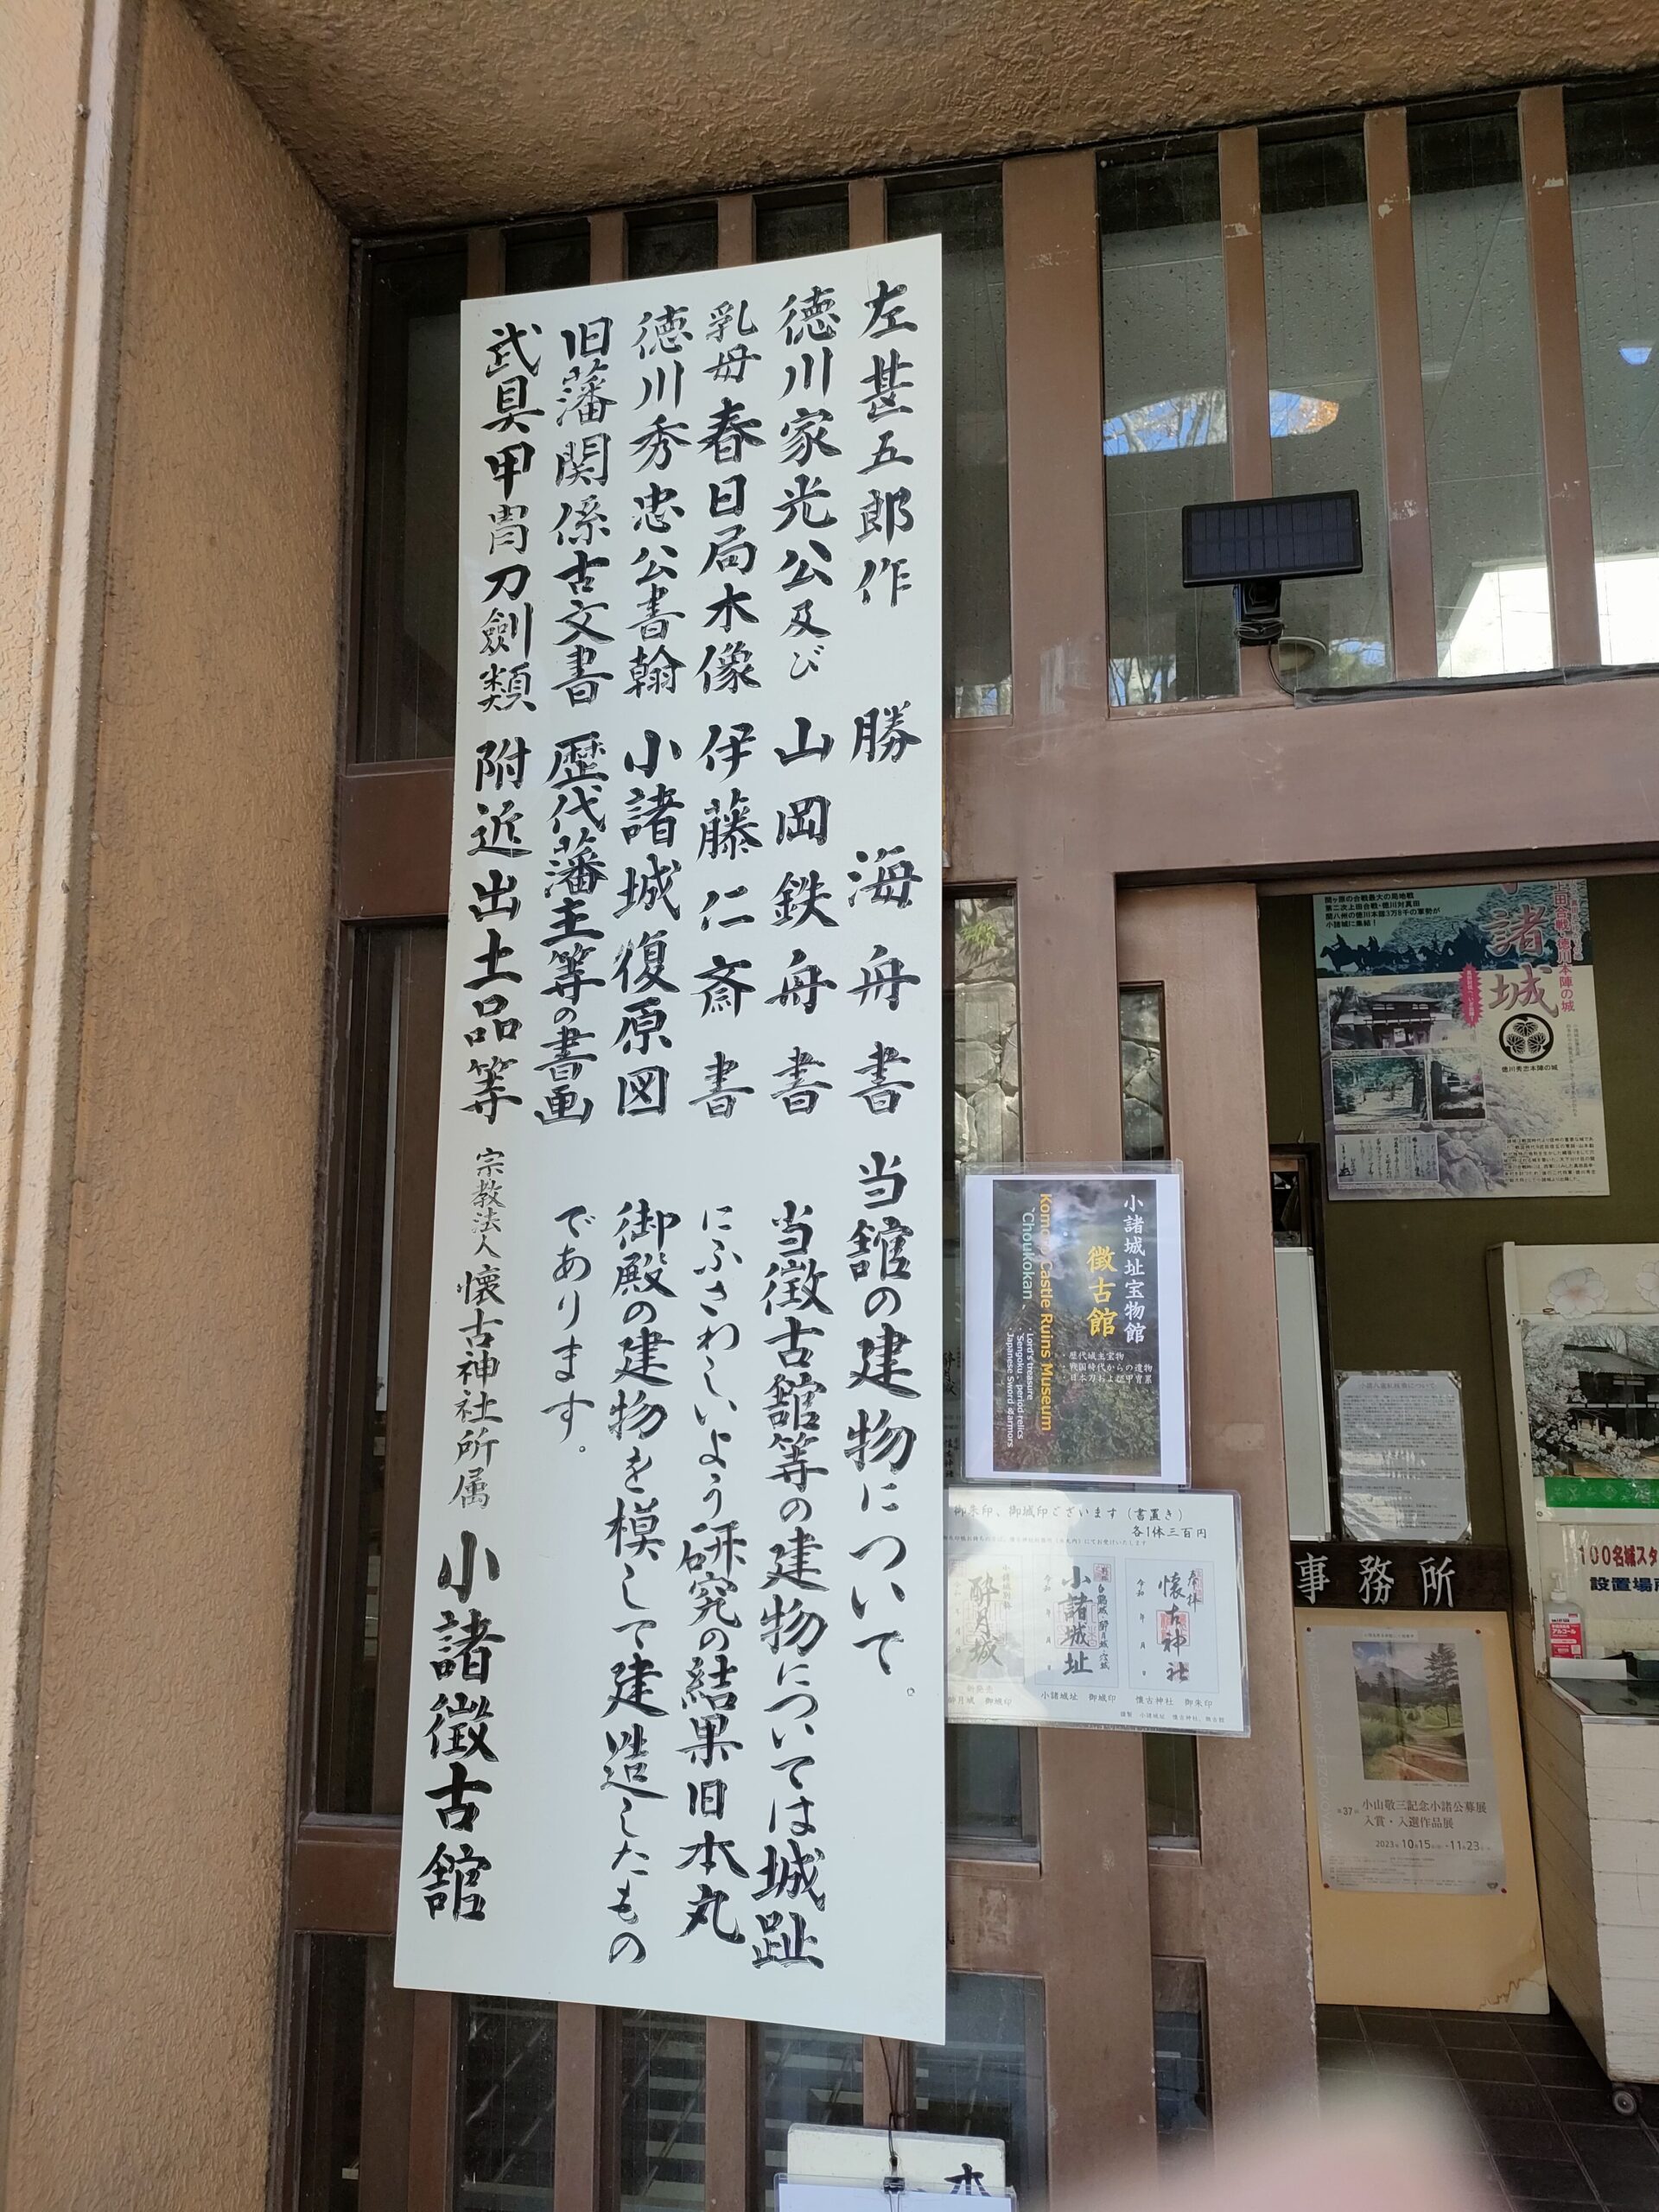 左甚五郎作
徳川家光公及び
乳母春日局木像
徳川秀忠公書翰
旧藩関係古文書
武具甲冑刀劍類
勝海舟書
山岡鉄舟書
伊藤仁斎書
小諸城復原図
歴代藩主等の書画
附近出土品等
当舘の建物について。
当徴古舘等の建物については城趾
にふさわしいよう研究の結果旧本丸
御殿の建物を模して建造したもの
であります。
宗教法人 懐古神社所属 小諸徴古舘
小諸城址宝物館
徴古館
・歴代城主宝物
・戦国時代からの遺物
Castle Ruins Museum
Choukokan
Lord's treasure
御朱印、御城印ございます(書置き)
各1体三百円
酔月城
小諸城址
懐古神社
小諸城址 御城印
懐古神社 御朱印
関ヶ原の合戦最大の局地戦
第二次上田合戦・徳川対真田
関八州の徳川本隊3万8千の軍勢が
小諸城に集結!
上田合戦・徳川本陣の城
諸城
徳川秀忠本陣の城
100名城スタ
設置場所
事務所
小山敬三記念小諸公募展
入賞・入選作品展